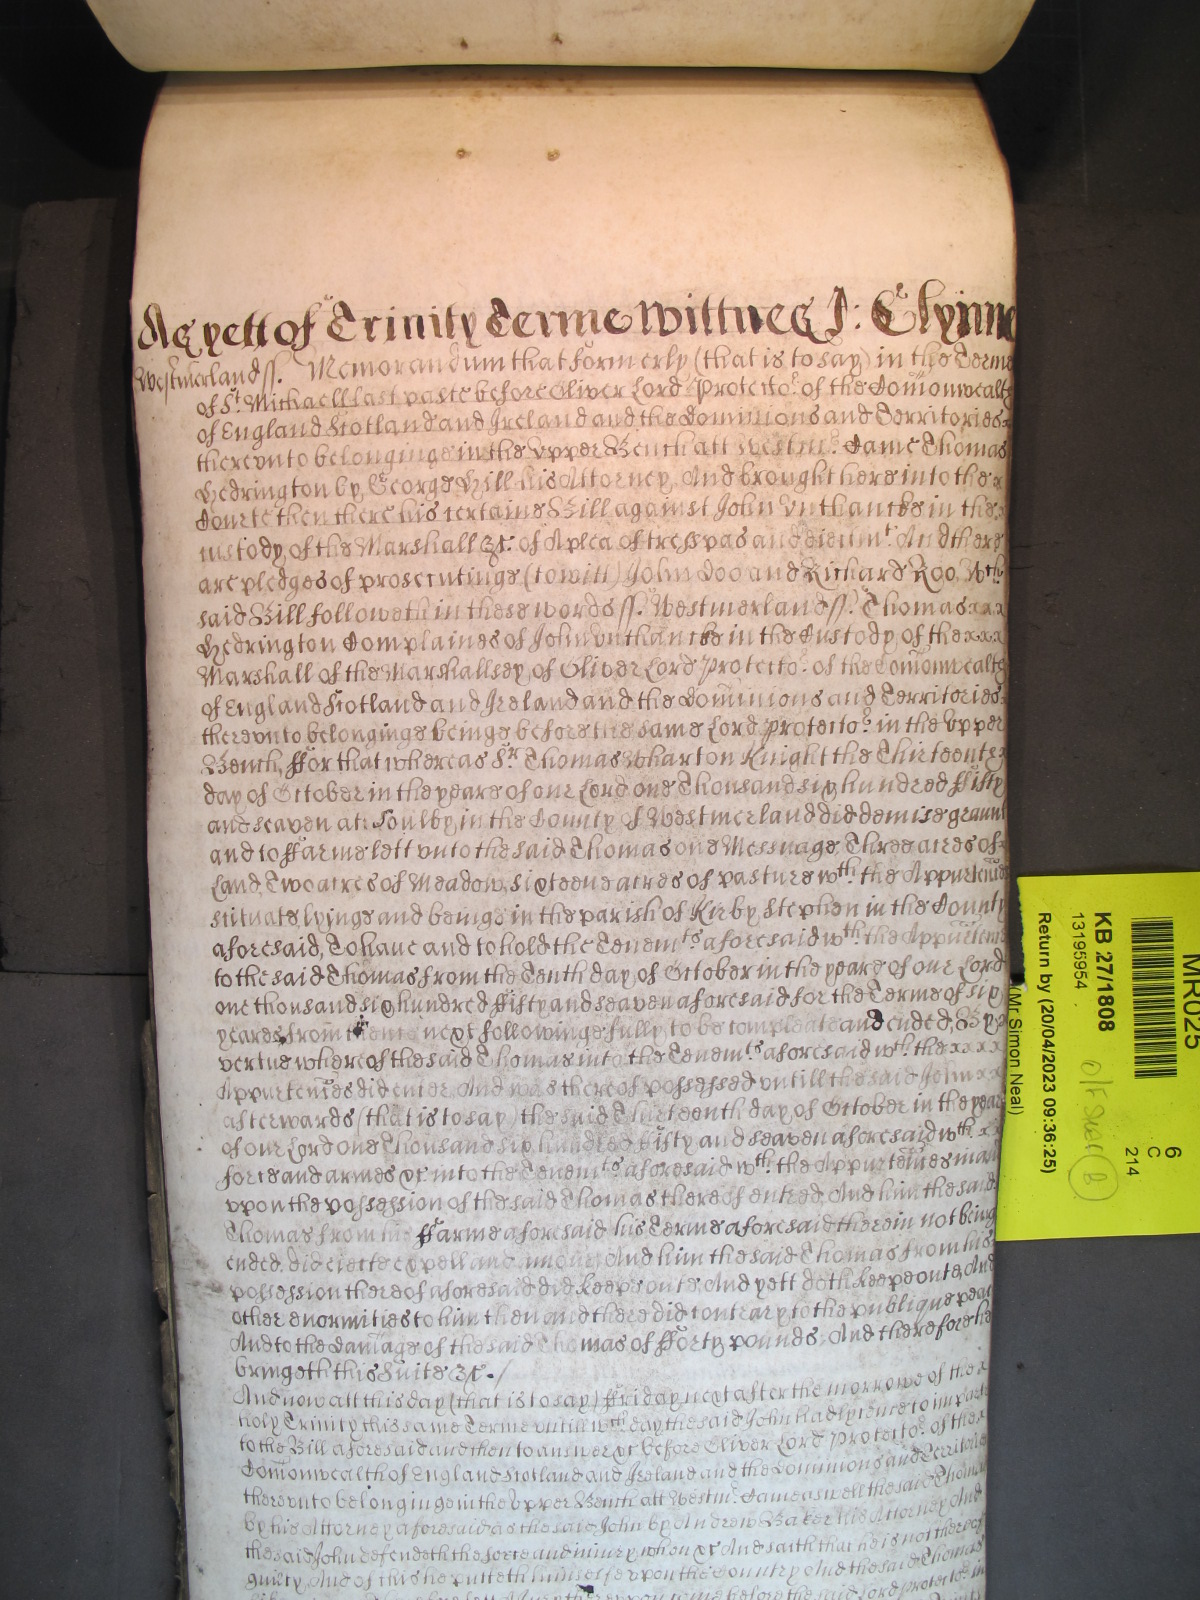 As yett of Trinity Terme Wittnes J: Glynne
Westmerland ss. Memorandum that formerly (that is to say) in the Terme
of St. Michaell last paste before Oliver Lord Protector of the Comonwealth
of England Scotland and Ireland and the Dominions and Territories
therevnto belonginge in the Vpper Bench att Westmr. Came Thomas
Hedrington by George Hill his Attorney And brought here into the x
Courte then there his certaine Bill against John Vnthancke in the x
custody of the Marshall &c. of A plea of tresspas and eiectmt. And there
are pledges of prosecutinge (to witt) John Doo and Richard Roo, Wch.
said Bill followeth in these words ss. Westmerland ss. Thomas x x x
Hedrington Complaines of John Vnthancke in the Custody of the x x x
Marshall of the Marshallsey of Oliver Lord Protector. of the Comonwealth
of England Scotland and Ireland and the Dominions and Territories
therevnto belonginge beinge before the same Lord Protector. in the Vpper
Bench, ffor that whereas Sr. Thomas Wharton Knight the Thirteenth x
day of October in the yeare of our Lord one Thousand six hundred ffifty
and seaven att Soulby in the County of Westmerland did demise graunt
and to ffarme lett vnto the said Thomas one Messuage, Three acres of
Land, Two acres of Meadow, sixteene acres of pasture wth. the Appurtenncs
situate lyinge and beinge in the parish of Kirby Stephen in the County
aforesaid, To haue and to hold the Tenemts. aforesaid wth. the Appurtenncs
to the said Thomas from the Tenth day of October in the yeare of our Lord
one thousand six hundred ffifty and seaven aforesaid for the Terme of six
yeares from thence next followinge fully to be compleate and ended, By x
vertue whereof the said Thomas into the Tenemts. aforesaid wth. the x x x x
Appurtennces did enter And was thereof possessed vntill the said John x x
afterwards (that is to say) the said Thirteenth day of October in the yeare
of our Lord one Thousand six hundred ffifty and seaven aforesaid wth. x x
force and armes &c. into the Tenemts. aforesaid wth. the Appurtennces in and
vpon the possession of the said Thomas thereof entred, And him the said
Thomas from his ffarme aforesaid his Terme aforesaid therein not being
ended, did eiecte expell and amoue, And him the said Thomas from his
possession thereof aforesaid did keepe oute, And yett doth keepe oute, And
other enormities to him then and there did contrary to the publique peace
And to the damage of the said Thomas of fforty pounds, And therefore he
bringeth this Suite &c. /
And now att this day (that is to say) ffriday next after the morrowe of the x
holy Trinity this same Terme vntill wch. day the said John had lycence to imparle
to the Bill aforesaid and then to answer &c. before Oliver Lord Protector. of the x
Comonwealth of England Scotland and Ireland and the Dominions and Territories
therevnto belonging in the Vpper Bench att Westmr. Came aswell the said Thomas
by his Attorney aforesaid as the said John by Andrew Baker his Attorney And
the said John defendeth the force and iniury when &c. And saith that he is not thereof
guilty, And of this he putteth himselfe vpon the Country And the said Thomas
MR025
6
C
214
KB 27/1808
13195954
Return by (20/04/2023 09:36:25)
(Mr Simon Neal)